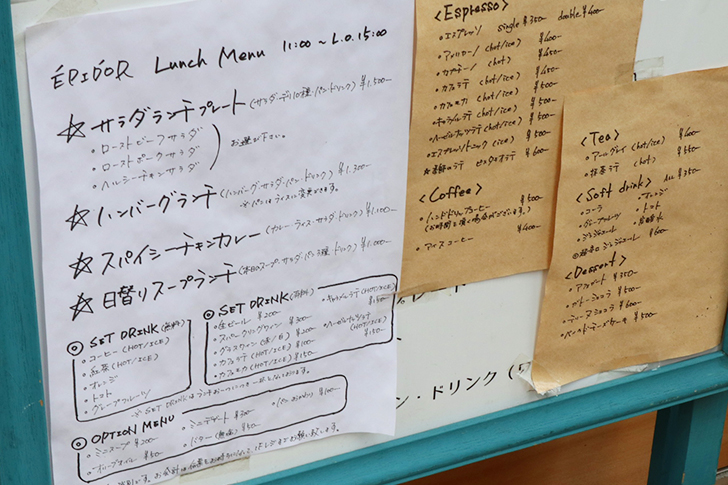 ÉPIDOR Lunch Menu 11:00 ~ L.O. 15:00
☆サラダランチプレート(サラダ・デリ10種・パン・ドリンク) ¥1,500-
・ローストビーフサラダ
・ローストポークサラダ
・ヘルシーチキンサラダ
お選び下さい。
☆ハンバーグランチ(ハンバーグ・サラダ・パン・ドリンク) ¥1,300-
※パンはライスに変更できます。
☆スパイシーチキンカレー(カレー・ライス・サラダ・ドリンク)
☆日替りスープランチ(本日のスープ・サラダ・パン3種・ドリンク) ¥1,000-
◎ SET DRINK(無料)
・コーヒー(HOT/ICE)
・紅茶(HOT/ICE)
・オレンジ
・トマト
・グレープフルーツ
◎ SET DRINK(有料)
・生ビール ¥200
・スパークリングワイン ¥300
・グラスワイン(赤/白) ¥200
・カフェラテ(HOT/ICE) ¥100
・カフェモカ(HOT/ICE) ¥150
・キャラメルラテ(HOT/ICE) ¥150
・ヘーゼルナッツラテ(HOT/ICE) ¥150
◎ OPTION MENU
・ミニスープ ¥200
・オリーブオイル ¥50
・ミニデザート ¥300
・バター(無塩) ¥50
<Espresso>
・エスプレッソ single ¥350 double ¥400-
・アメリカーノ(hot/ice) ¥400
・カプチーノ(hot) ¥450
・カフェラテ(hot/ice) ¥450
・カフェモカ(hot/ice) ¥500
・キャラメルラテ(hot/ice) ¥500
・ヘーゼルナッツラテ(hot/ice) ¥500
・エスプレッソトニック(ice) ¥500
¥600
<Coffee>
・ハンドドリップコーヒー ¥500
(お時間を頂く場合がございます。)
・アイスコーヒー ¥400
<Tea>
・アールグレイ(hot/ice) ¥400
・抹茶ラテ(hot) ¥550
<Soft drink> ALL ¥350
・コーラ ・オレンジ
・グレープフルーツ ・トマト
・ジンジャエール ・炭酸水
ジンジャエール ¥600
<Dessert>
・アフォガード ¥550
・ガトーショコラ ¥500
・テリーヌショコラ ¥600
・ベイクドチーズケーキ ¥500
ン・ドリンク(ワ